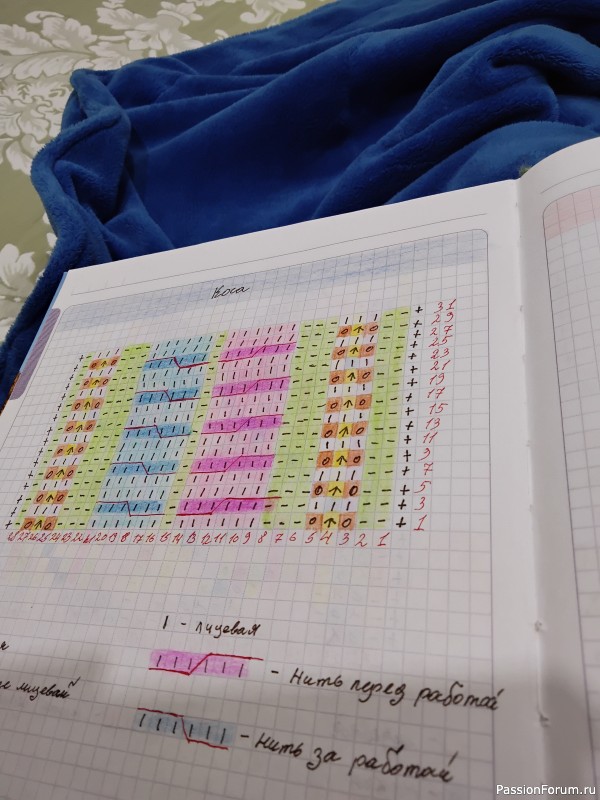 Коса
+ 31
+ 29
+ 27
+ 25
+ 23
+ 21
+ 19
+ 17
+ 15
+ 13
+ 11
+ 9
+ 7
+ 5
+ 3
+ 1
28 27 26 25 24 23 22 21 20 19 18 17 16 15 14 13 12 11 10 9 8 7 6 5 4 3 2 1
I - лицевая
лицевой
- нить перед работой
- нить за работой
PassionForum.ru